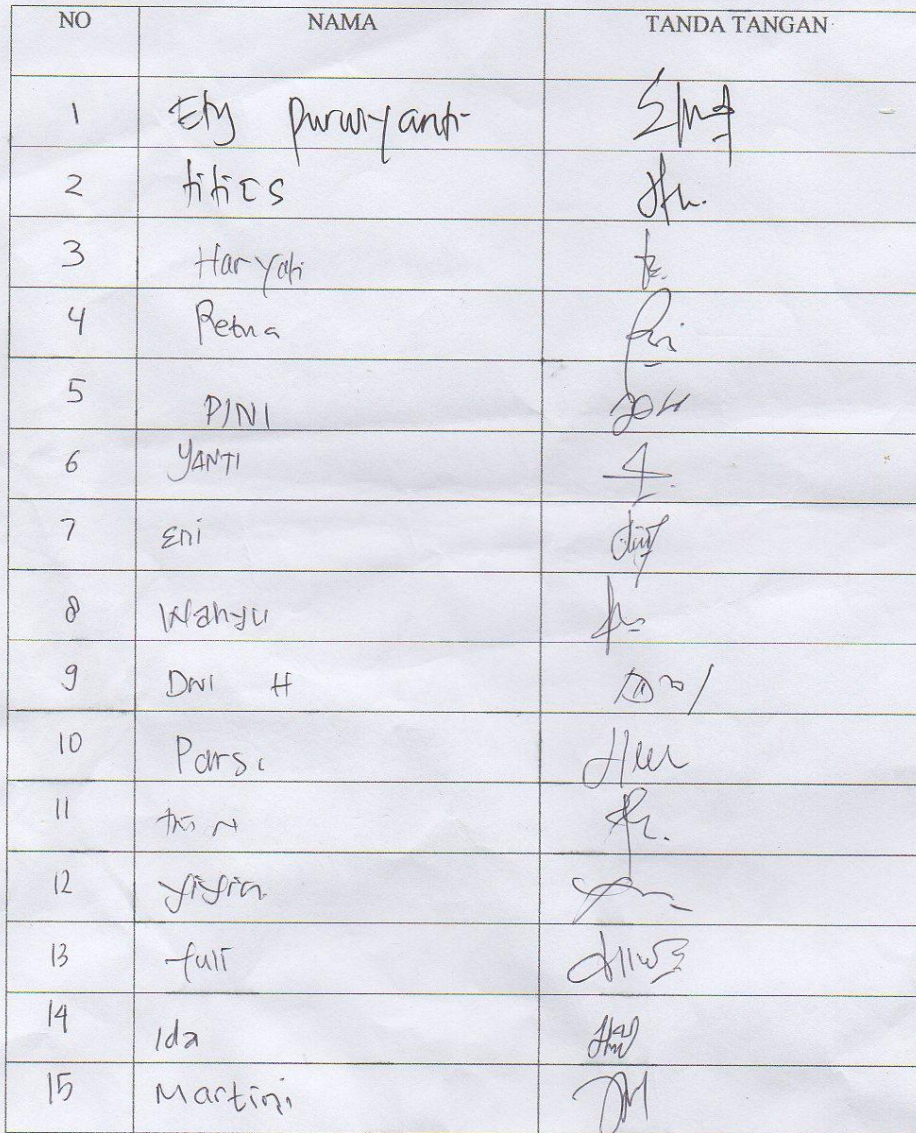 NO NAMA TANDA TANGAN
1 Ety Purwiyanti
2 titi CS
3 Haryati
4 Retna
5 PINI
6 YANTI
7 Eni
8 Wahyu
9 DWI H
10 Parsi
11 tri N
12 yiyin
13 tuli
14 Ida
15 Martini